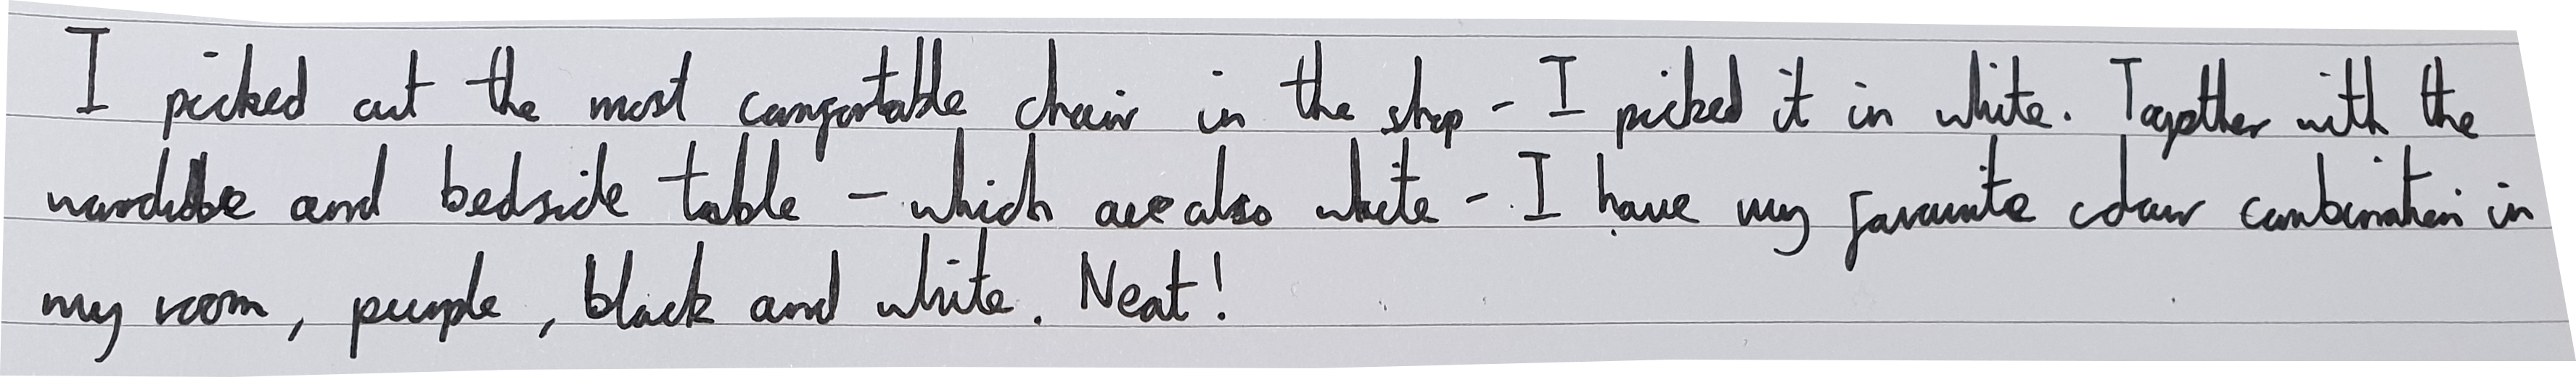 I picked out the most comfortable chair in the shop - I picked it in white. Together with the
wardrobe and bedside table - which are also white - I have my favourite colour combination in
my room, purple, black and white. Neat!